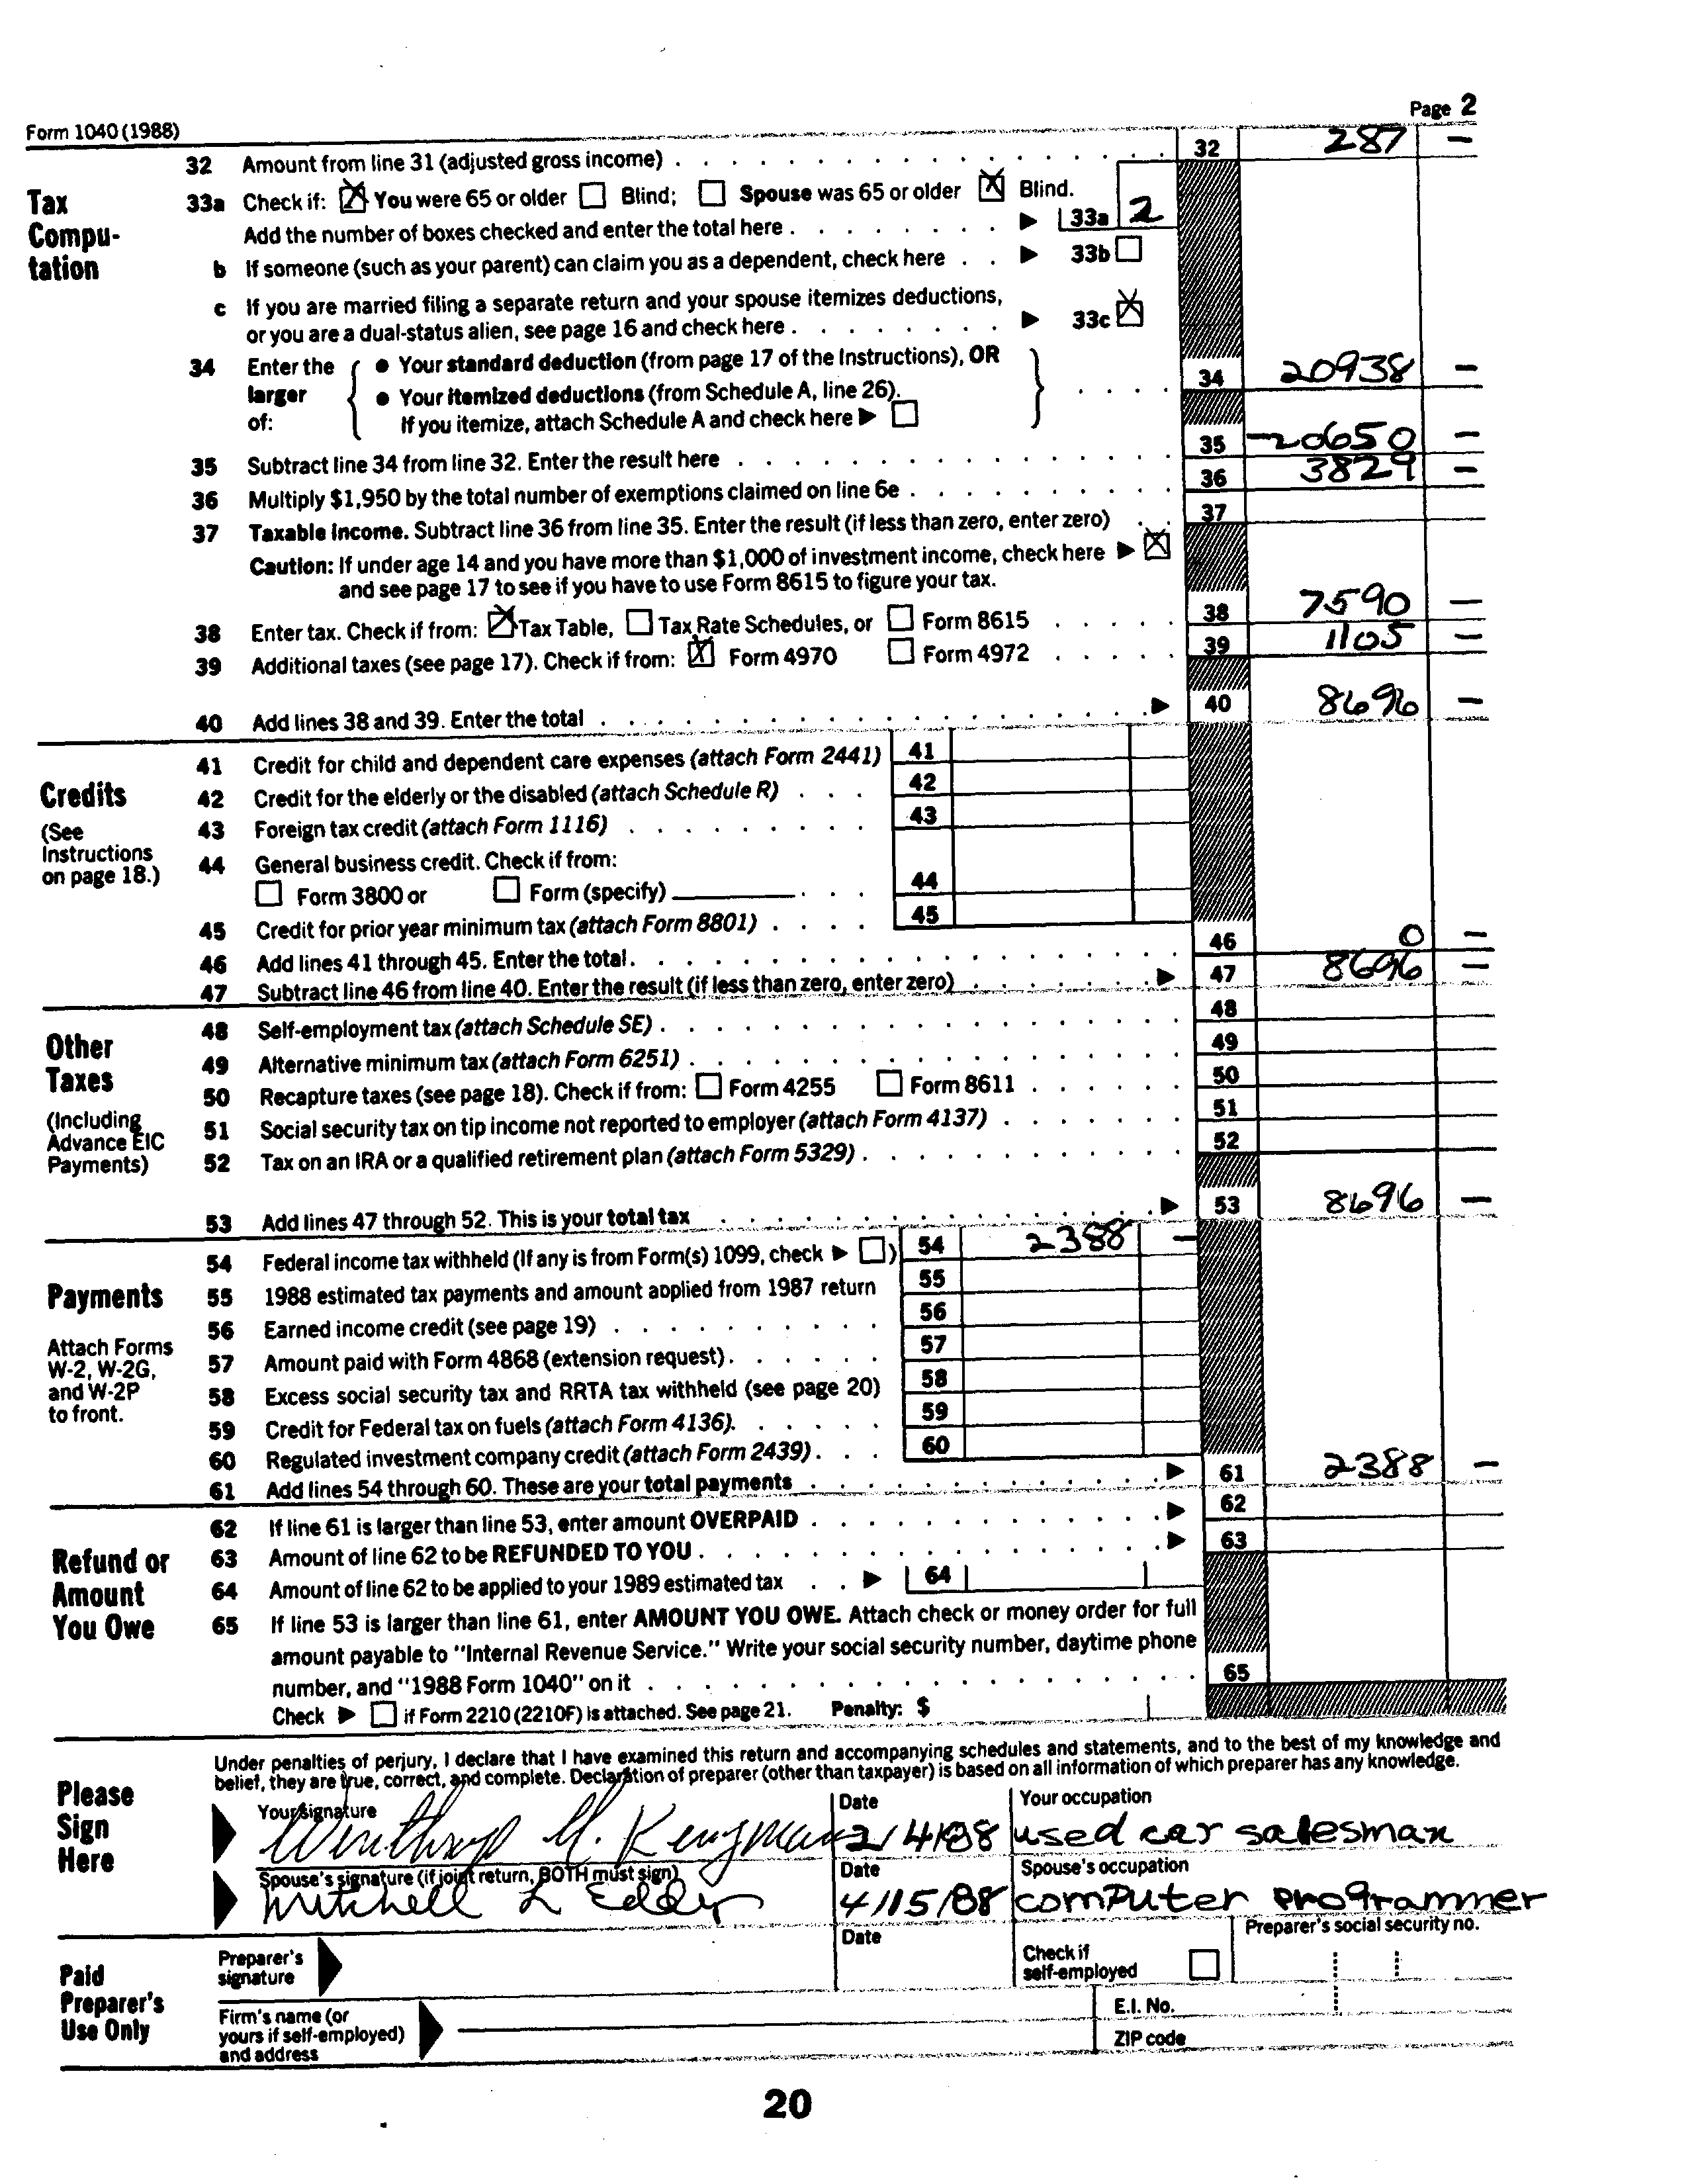 Form 1040 (1988) Page 2
32 Amount from line 31 (adjusted gross income) . . . 32 287 –
Tax Compu- tation
33a Check if: [X] You were 65 or older [ ] Blind; [ ] Spouse was 65 or older [X] Blind.
Add the number of boxes checked and enter the total here . . . ▶ 33a 2
b If someone (such as your parent) can claim you as a dependent, check here . . ▶ 33b [ ]
c If you are married filing a separate return and your spouse itemizes deductions,
or you are a dual-status alien, see page 16 and check here . . . ▶ 33c [X]
34 Enter the larger of: { ● Your standard deduction (from page 17 of the Instructions), OR
● Your itemized deductions (from Schedule A, line 26).
If you itemize, attach Schedule A and check here ▶ [ ] } . . . 34 20938 –
35 Subtract line 34 from line 32. Enter the result here . . . 35 -20650 –
36 Multiply $1,950 by the total number of exemptions claimed on line 6e . . . 36 3829 –
37 Taxable income. Subtract line 36 from line 35. Enter the result (if less than zero, enter zero) . . 37
Caution: If under age 14 and you have more than $1,000 of investment income, check here ▶ [X]
and see page 17 to see if you have to use Form 8615 to figure your tax.
38 Enter tax. Check if from: [X] Tax Table, [ ] Tax Rate Schedules, or [ ] Form 8615 . . . 38 7590 –
39 Additional taxes (see page 17). Check if from: [X] Form 4970 [ ] Form 4972 . . . 39 1105 –
40 Add lines 38 and 39. Enter the total . . . ▶ 40 8696 –
Credits
(See Instructions on page 18.)
41 Credit for child and dependent care expenses (attach Form 2441) 41
42 Credit for the elderly or the disabled (attach Schedule R) . . . 42
43 Foreign tax credit (attach Form 1116) . . . 43
44 General business credit. Check if from:
[ ] Form 3800 or [ ] Form (specify) ________ . . . 44
45 Credit for prior year minimum tax (attach Form 8801) . . . 45
46 Add lines 41 through 45. Enter the total . . . 46 0 –
47 Subtract line 46 from line 40. Enter the result (if less than zero, enter zero) . . . ▶ 47 8696 –
Other Taxes
(Including Advance EIC Payments)
48 Self-employment tax (attach Schedule SE) . . . 48
49 Alternative minimum tax (attach Form 6251) . . . 49
50 Recapture taxes (see page 18). Check if from: [ ] Form 4255 [ ] Form 8611 . . . 50
51 Social security tax on tip income not reported to employer (attach Form 4137) . . . 51
52 Tax on an IRA or a qualified retirement plan (attach Form 5329) . . . 52
53 Add lines 47 through 52. This is your total tax . . . ▶ 53 8696 –
Payments
Attach Forms W-2, W-2G, and W-2P to front.
54 Federal income tax withheld (If any is from Form(s) 1099, check ▶ [ ] ) 54 2388 –
55 1988 estimated tax payments and amount applied from 1987 return 55
56 Earned income credit (see page 19) . . . 56
57 Amount paid with Form 4868 (extension request) . . . 57
58 Excess social security tax and RRTA tax withheld (see page 20) 58
59 Credit for Federal tax on fuels (attach Form 4136) . . . 59
60 Regulated investment company credit (attach Form 2439) . . . 60
61 Add lines 54 through 60. These are your total payments . . . ▶ 61 2388 –
Refund or Amount You Owe
62 If line 61 is larger than line 53, enter amount OVERPAID . . . ▶ 62
63 Amount of line 62 to be REFUNDED TO YOU . . . ▶ 63
64 Amount of line 62 to be applied to your 1989 estimated tax . . ▶ 64
65 If line 53 is larger than line 61, enter AMOUNT YOU OWE. Attach check or money order for full
amount payable to "Internal Revenue Service." Write your social security number, daytime phone
number, and "1988 Form 1040" on it . . . 65
Check ▶ [ ] if Form 2210 (2210F) is attached. See page 21. Penalty: $
Please Sign Here
Under penalties of perjury, I declare that I have examined this return and accompanying schedules and statements, and to the best of my knowledge and
belief, they are true, correct, and complete. Declaration of preparer (other than taxpayer) is based on all information of which preparer has any knowledge.
Your signature Date Your occupation
Winthrop M. Kingman 2/4/88 used car salesman
Spouse's signature (if joint return, BOTH must sign) Date Spouse's occupation
Mitchell L Eddy 4/15/88 computer programmer
Paid Preparer's Use Only
Preparer's signature Date Check if self-employed [ ] Preparer's social security no.
Firm's name (or yours if self-employed) and address E.I. No.
ZIP code
20